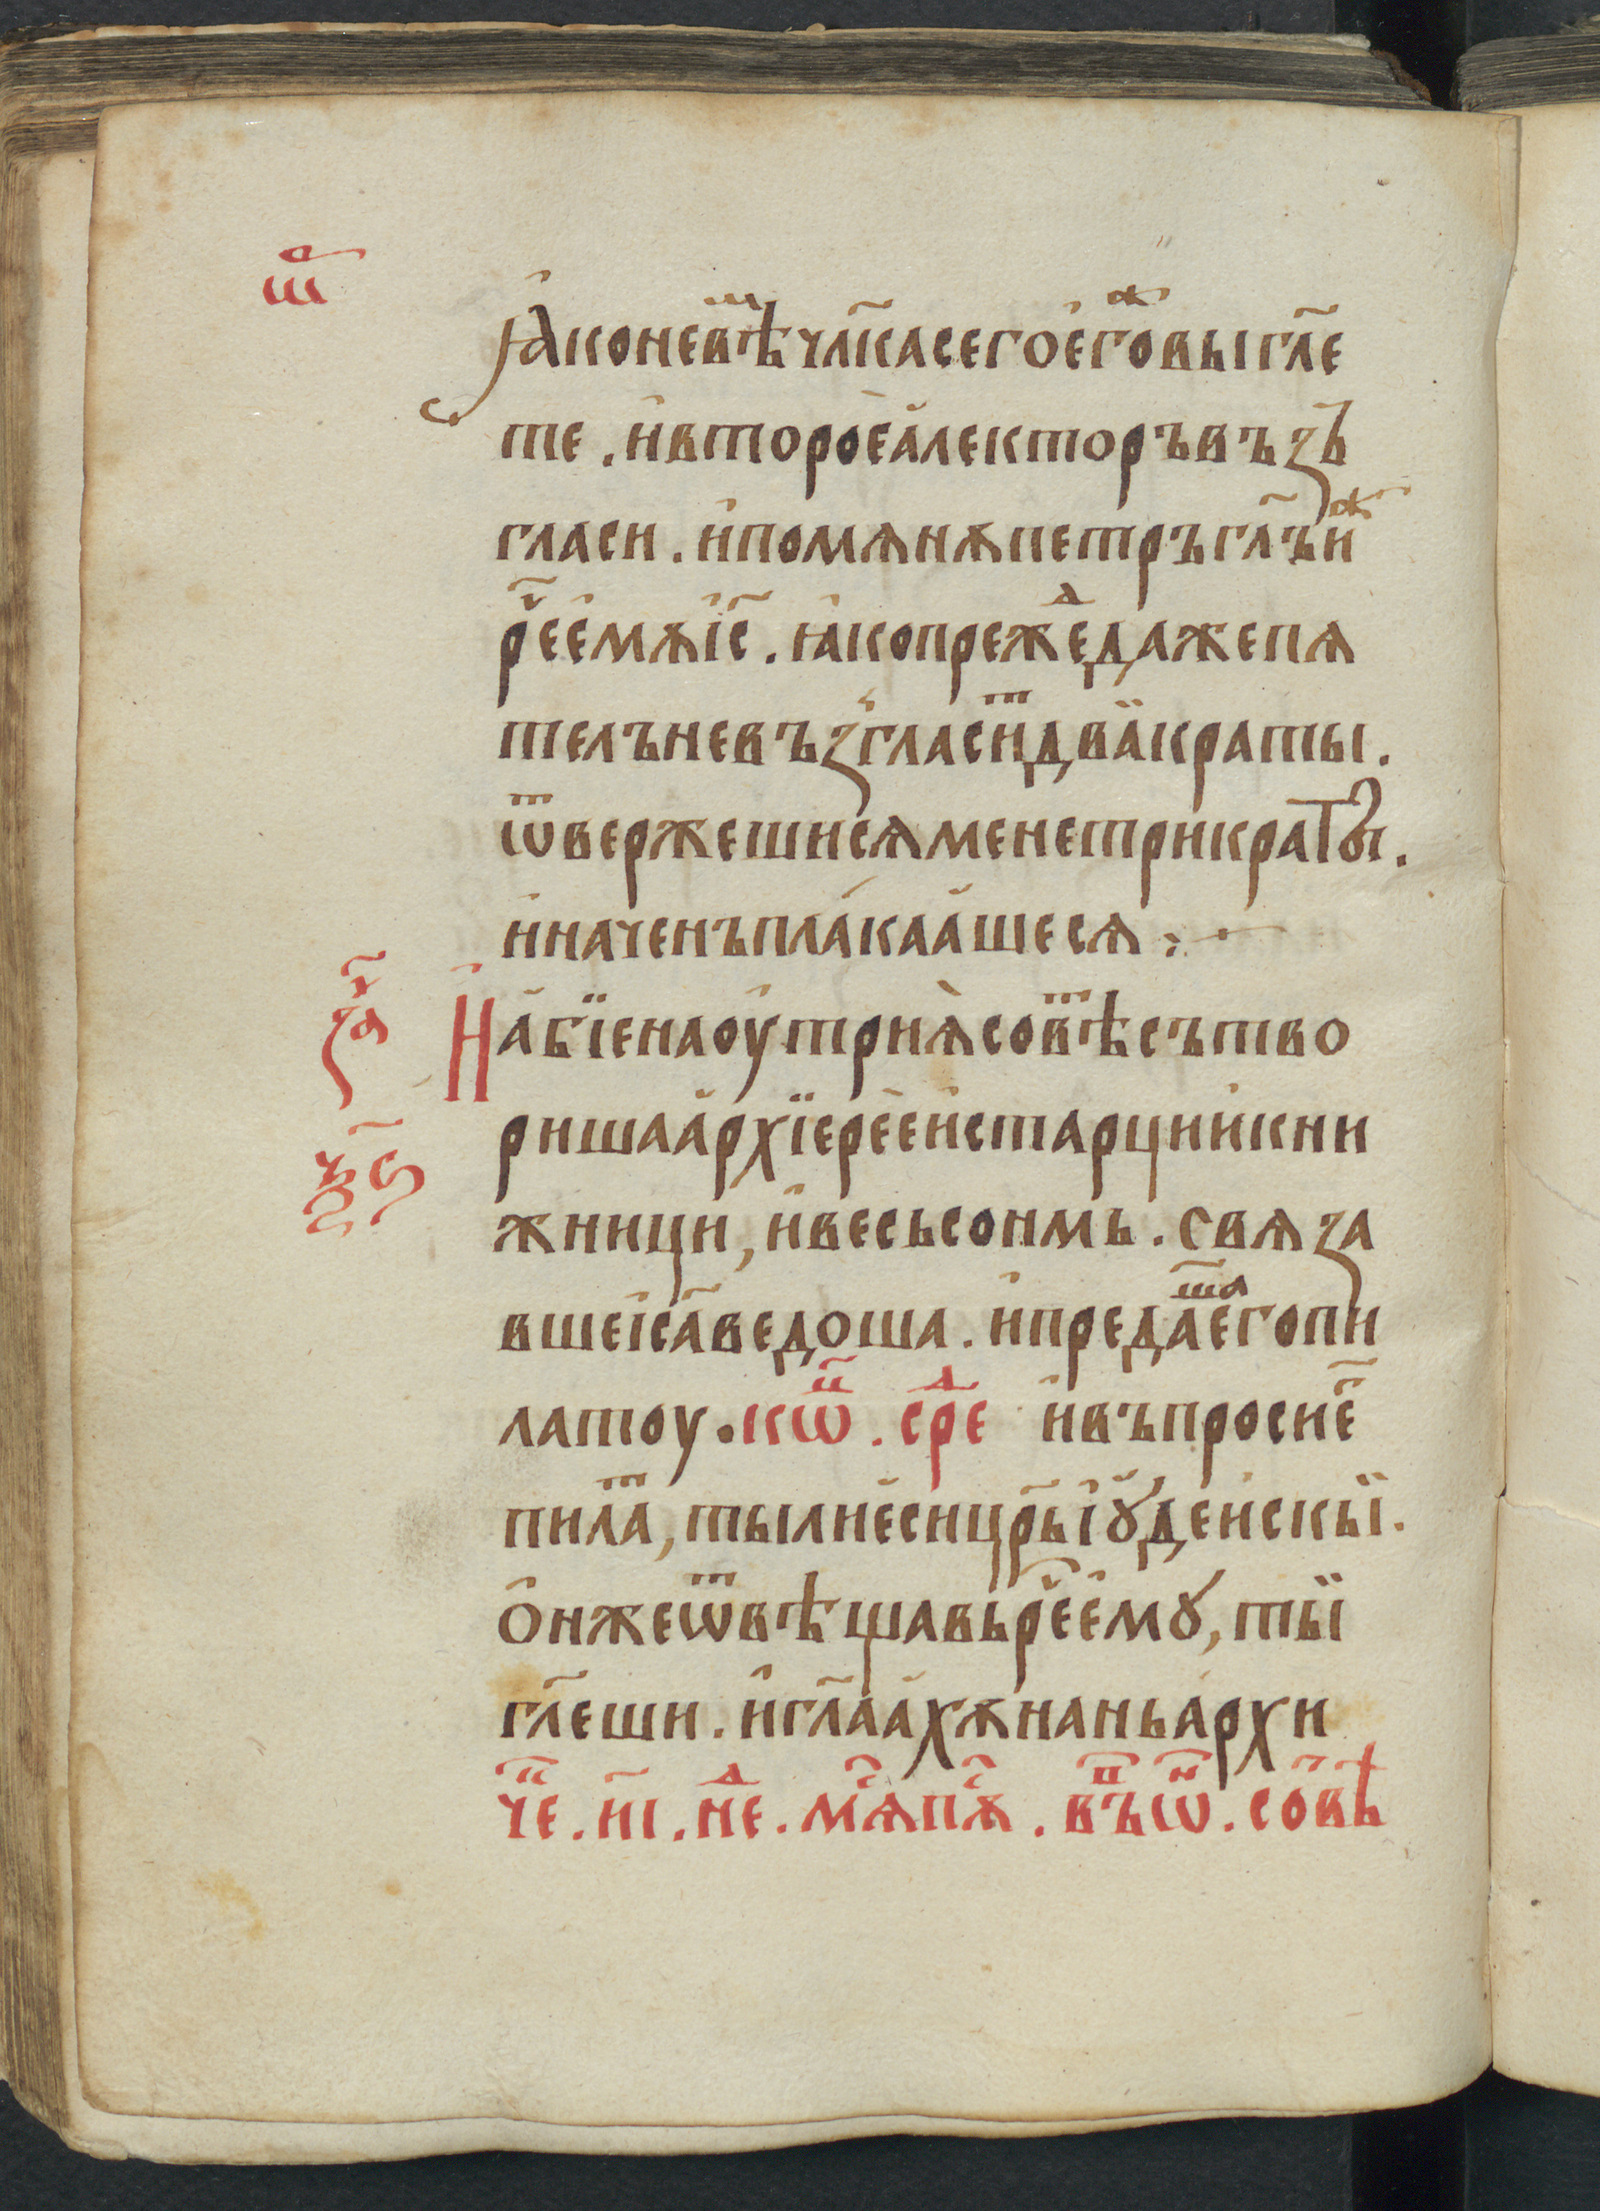 ꙗ҆коневѣⷨ҇члк҃асегое҆гоⷤвыгл҃е
те . и҆второеа҆лекторъвъзъ
гласи . и҆помѧнѫпетръгл҃ъиⷤ
рⷱ҇ее҆мѫі҆с҃ . ꙗ҆копрежеⷣдажепѧ
телъневъзгласиⷮдвакраты .
ѿвержешисѧменетрикраты .
и҆наченъплакаа҆шесѧ :
И҆а҆бїенаоутрїѧсовѣⷮсътво
ришаа҆рхїере́еи҆старции҆кни
жници , и҆весьсонмь . свѧза
вшеі҆са҃ведоша . и҆предаⷲ҇е҆гопи
латоу . кѡⷰ҇ . среⷣ и҆въпросие҆г
пилаⷮ , тылие҆сицр҃ьі҆ꙋдейскы .
о҆нжеѿвѣщавьрⷱ҇ее҆мꙋ , ты
гл҃еши . и҆гл҃аа҆хѫнаньа҆рхи
чеⷰ҇ . н҃і . неⷣ . мѧⷭ҇пꙋⷭ҇ . въⷫ҇ѡⷩ҇ . совѣ